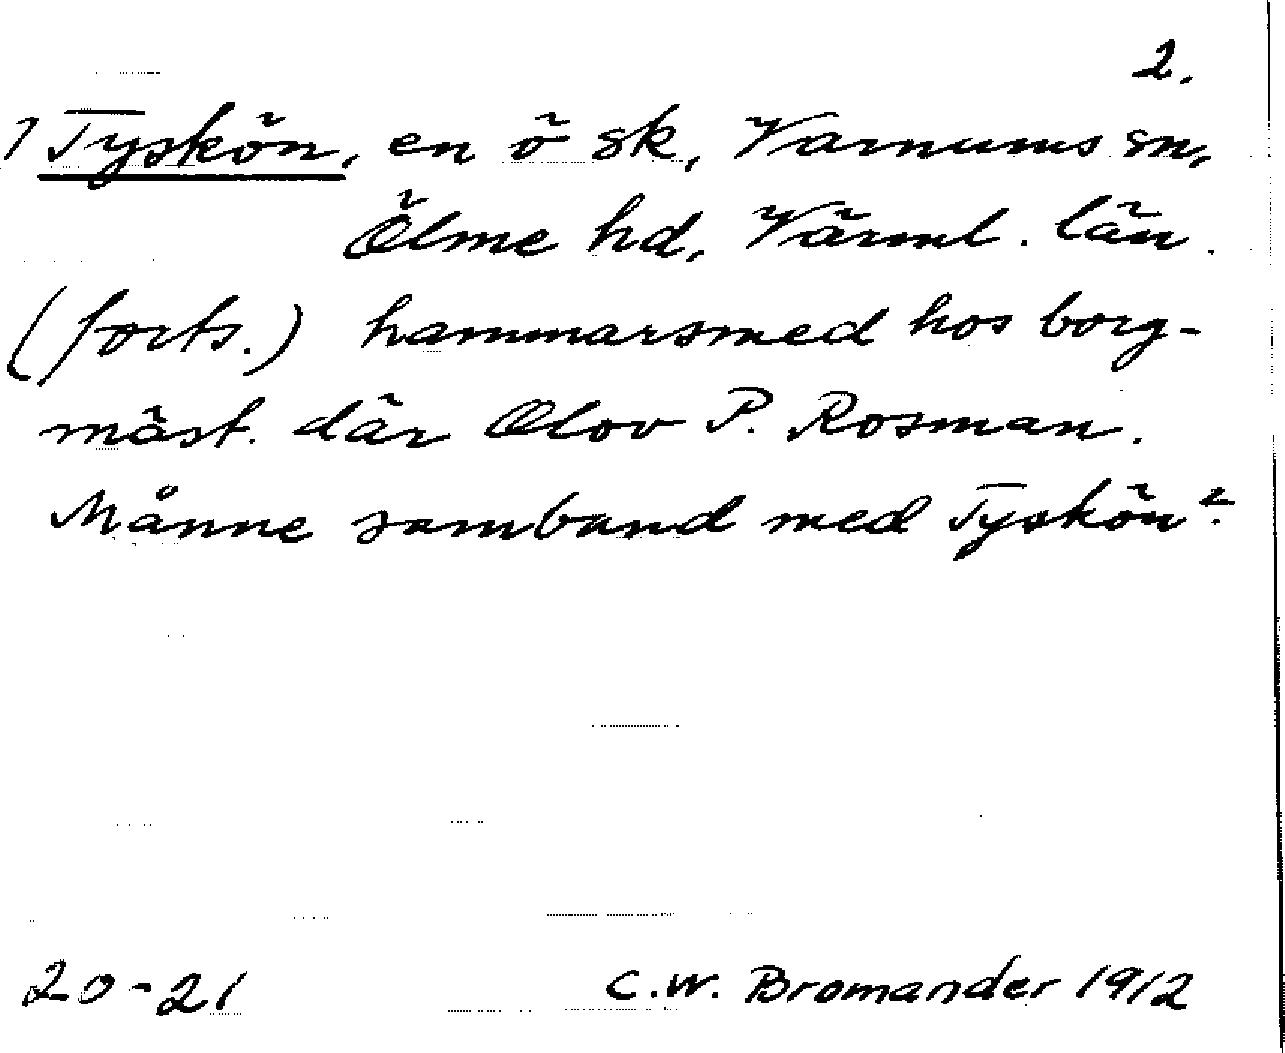 2.
1 Tyskön, en ö sk, Varnums sn,
Ölme hd, Värml. län.
(forts.) hammarsmed hos borg-
mäst. där Olov P. Rosman.
Månne samband med Tyskön?
20-21 C.W. Bromander 1912